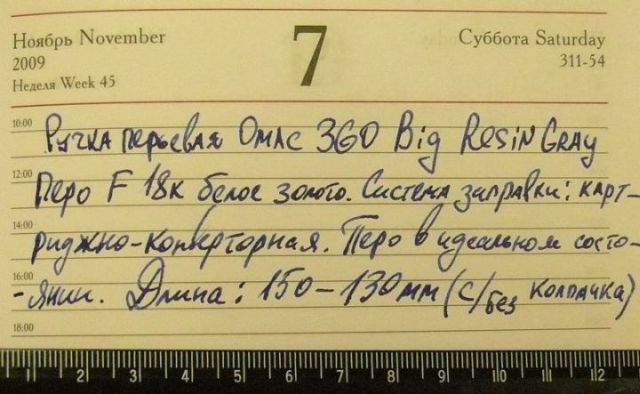 Ноябрь November
2009
Неделя Week 45
7
Суббота Saturday
311-54
10:00
Ручка перьевая OMAC 360 Big Resin Gray
12:00
Перо F 18к белое золото. Система заправки: карт-
14:00
риджно-конверторная. Перо в идеальном состо-
16:00
-янии. Длина: 150-130мм (с/без колпачка)
18:00
1 2 3 4 5 6 7 8 9 10 11 12